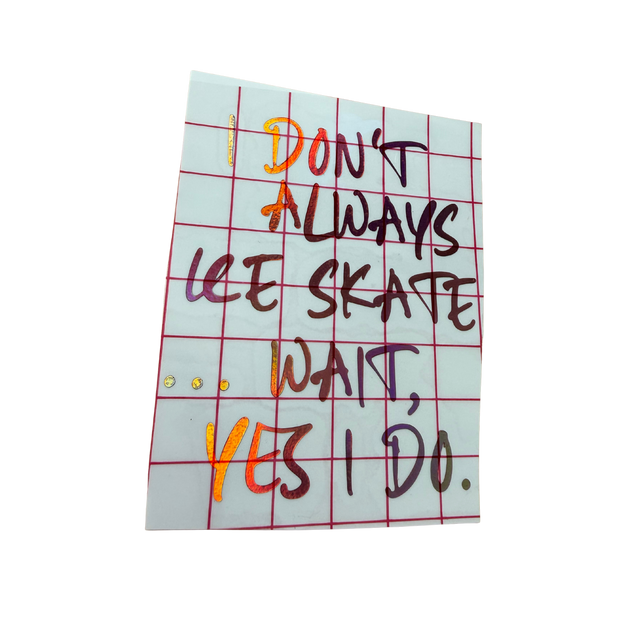 I DON'T
ALWAYS
ICE SKATE
... WAIT,
YES I DO.